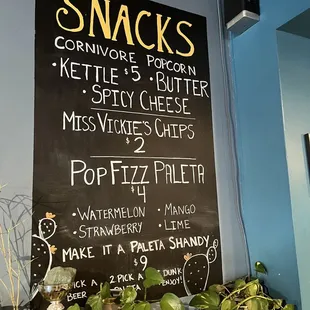 SNACKS
CORNIVORE POPCORN
• KETTLE $5 • BUTTER
• SPICY CHEESE
MISS VICKIE'S CHIPS
$2
POP FIZZ PALETA
$4
• WATERMELON • MANGO
• STRAWBERRY • LIME
MAKE IT A PALETA SHANDY
$9
1 PICK A BEER
2 PICK A
DUNK & ENJOY!